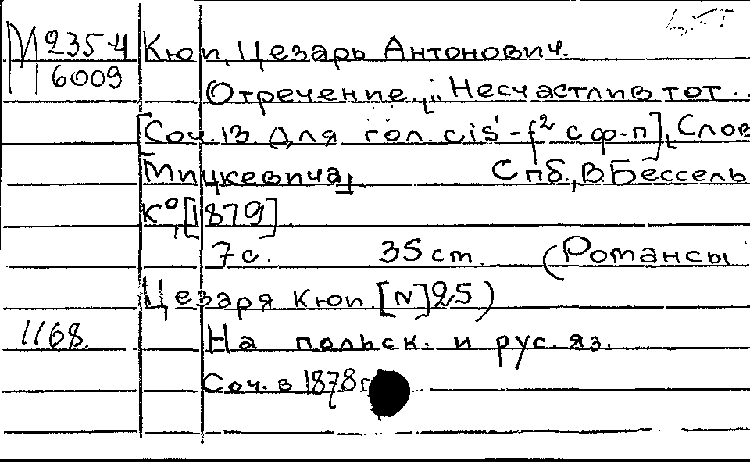 М 235-4 Кюи, Цезарь Антонович.
6009 Отречение. "Несчастлив тот...
[Соч. 13. Для гол. cis¹-f² с ф-п], Слов
Мицкевича Спб., В. Бессель
К°, [1879]
7 с. 35 ст. (Романсы
Цезаря Кюи. [N] 25)
1168. На польск. и рус. яз.
Соч. в 1878 г.